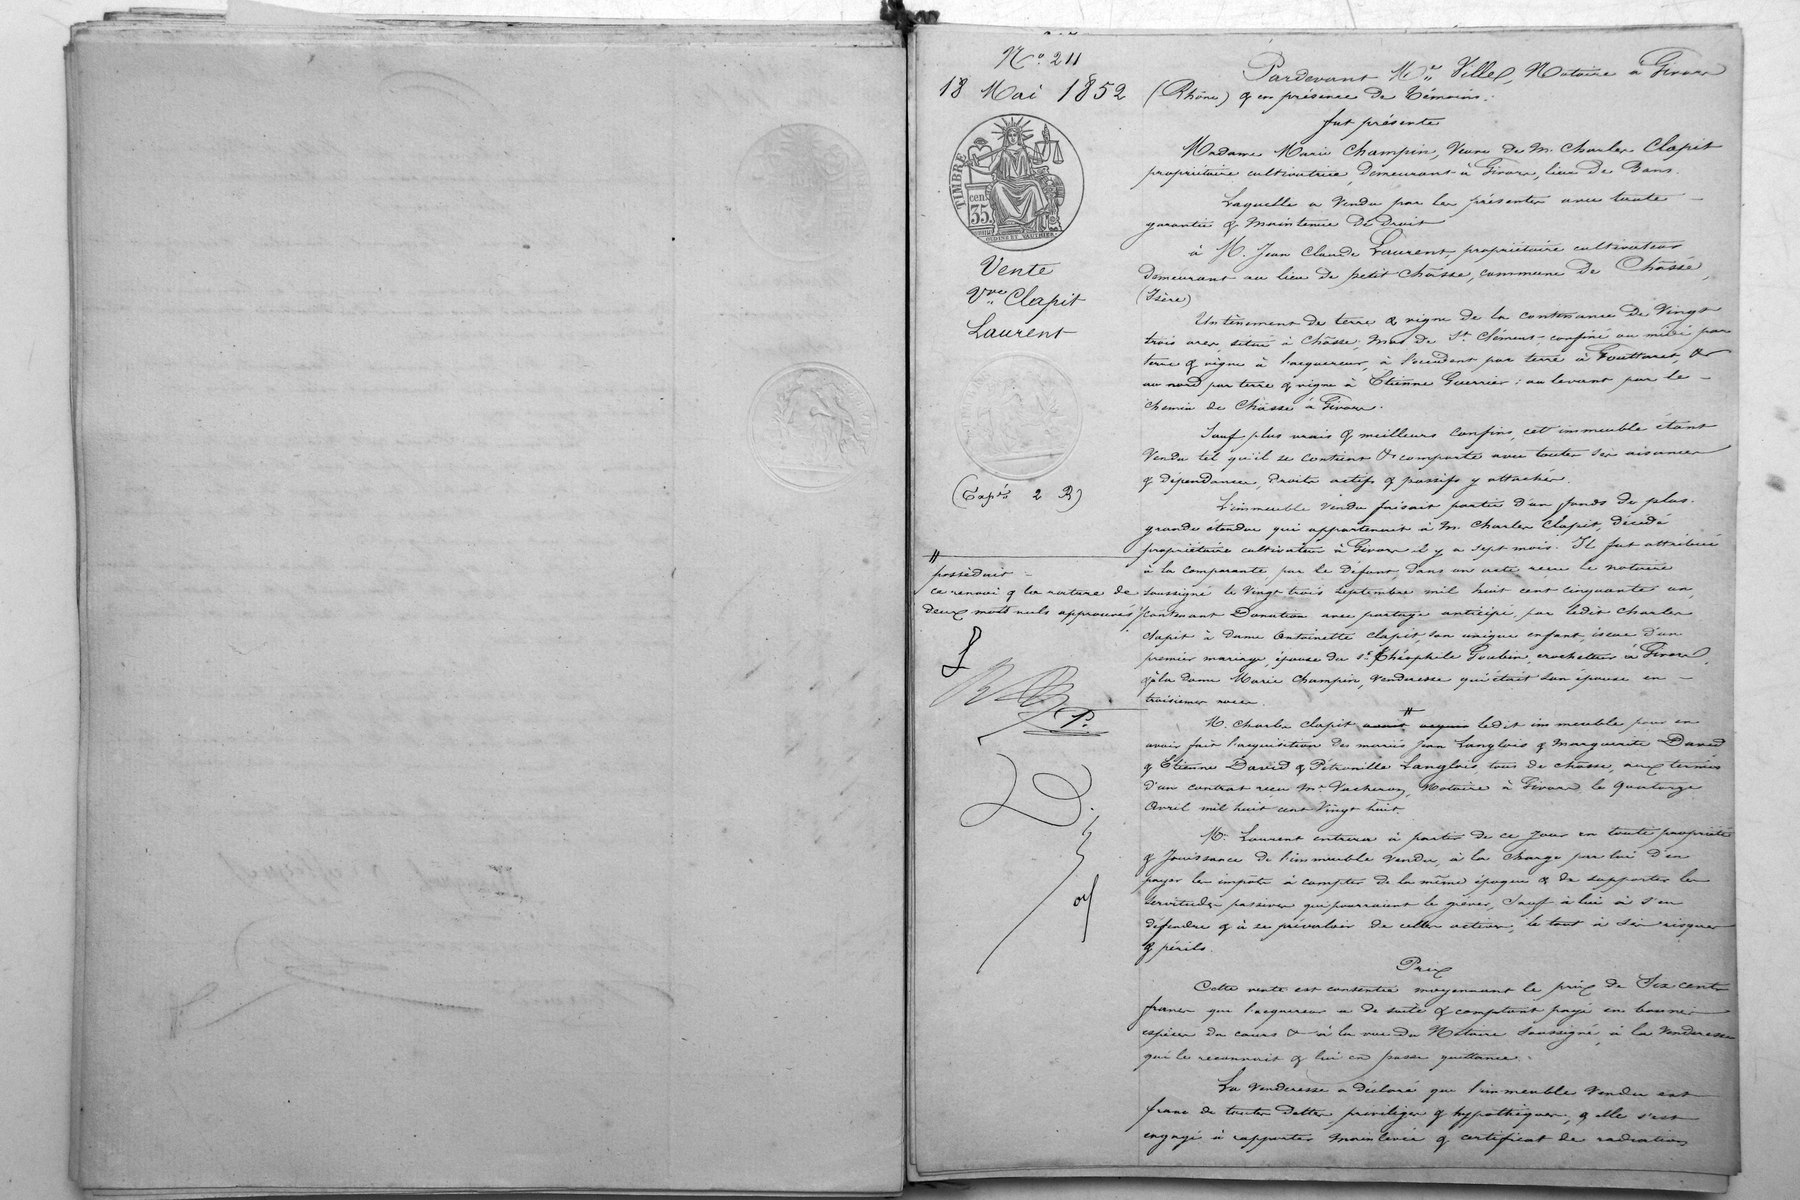 N.° 211
18 Mai 1852
TIMBRE
cen.
35
Vente
Vve Clapit
Laurent
(Expée 2 R)
Pardevant Me Ville, Notaire à Givors
(Rhône) & en présence de témoins.
fut présente
Madame Marie Champin, Veuve de M. Charles Clapit
propriétaire cultivatrice, demeurant à Givors, lieu de Bans.
Laquelle a vendu par les présentes avec toute
garantie & maintenue de droit
à M. Jean Claude Laurent, propriétaire cultivateur
demeurant au lieu de petit Châsse, commune de Châsse,
(Isère)
Un tènement de terre & vigne de la contenance de Vingt
trois ares, situé à Châsse Mas de St Clément - confiné au midi par
terre & vigne à l'acquereur, à l'occident par terre à Gouttaret, &
au nord par terre & vigne à Etienne Guerrier ; au levant par le
chemin de Châsse à Givors.
Sauf plus vrais & meilleurs confins, cet immeuble étant
Vendu tel qu'il se contient & comporte avec toutes ses aisances
& dépendances, droits actifs & passifs y attachés.
L'immeuble vendu faisait partie d'un fonds de plus
grande étendue qui appartenait à M. Charles Clapit, décédé
propriétaire cultivateur à Givors il y a sept mois. Il fut attribué
à la comparante par le défunt, dans un acte reçu le notaire
soussigné le Vingt trois septembre mil huit cent cinquante un,
contenant Donation avec partage anticipé, par ledit Charles
Clapit à dame Antoinette Clapit, son unique enfant, issue d'un
premier mariage, épouse du Sr Théophile Goubin, crocheteur à Givors,
& à la dame Marie Champin, Venderesse qui était son épouse en
troisièmes noces.
M. Charles Clapit ledit immeuble pour en
avoir fait l'acquisition des mariés Jean Langlois & Marguerite David
& Etienne David & Pétronille Langlois, tous de Châsse, aux termes
d'un contrat reçu Me Vacheron, Notaire à Givors le quatorze
Avril mil huit cent Vingt huit.
M. Laurent entrera à partir de ce jour en toute propriété
& Jouissance de l'immeuble vendu, à la charge par lui d'en
payer les impôts à compter de la même époque & de supporter les
servitudes passives qui pourraient le grèver, sauf à lui à s'en
défendre & à se prévaloir de celles actives, le tout à ses risques
& périls.
Prix
Cette vente est consentie moyennant le prix de Six cents
francs que l'acquereur a de suite & comptant payé en bonnes
espèces du cours & à la vue du Notaire soussigné, à la Venderesse
qui le reconnait & lui en passe quittance.
La Venderesse a déclaré que l'immeuble Vendu est
franc de toutes dettes privilèges & hypothèques, & elle s'est
engagé à rapporter mainlevée & certificat de radiation
possédait
ce renvoi & la rature de
deux mots nuls approuvés